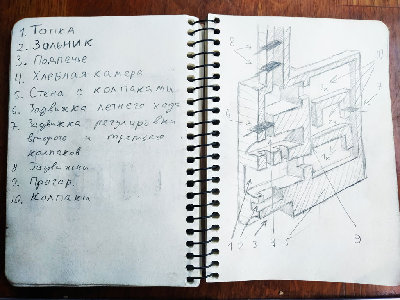 1. Топка
2. Зольник
3. Подпечье
4. Хлебная камера
5. Стена с колпаками
6. Задвижка летнего хода
7. Задвижка регулировки
второго и третьего
колпаков
8 Задвижки
9. Прогар.
10. Колпаки
8
10
7
6
1 2 3 4 5 9